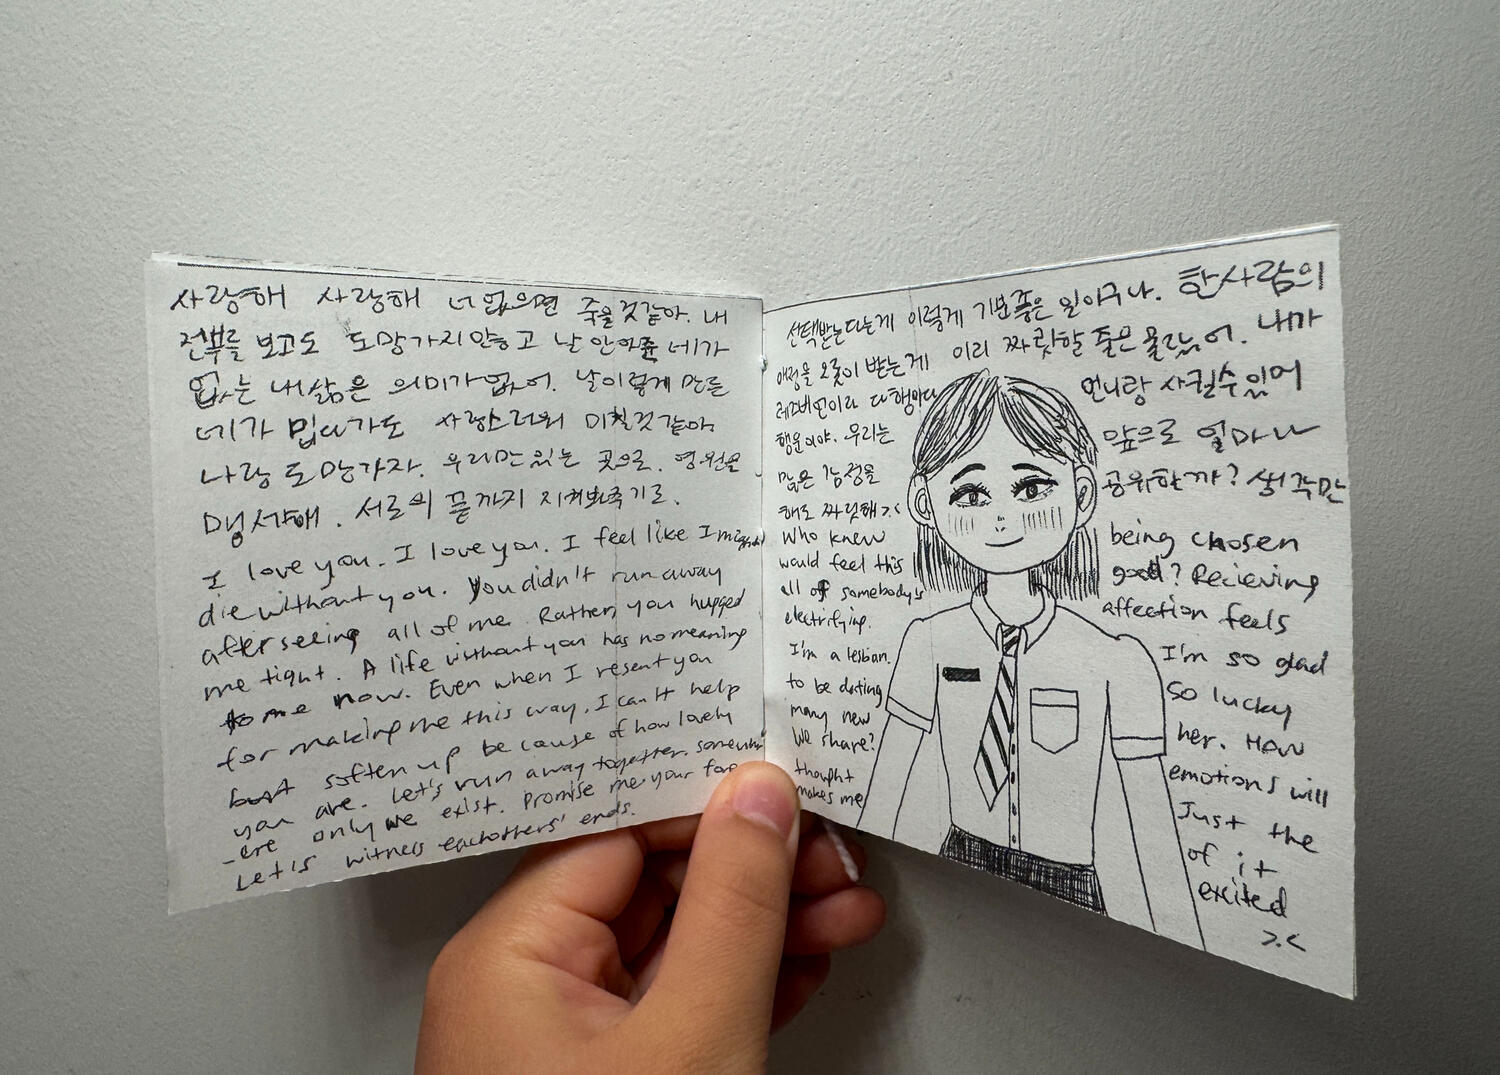 사랑해 사랑해 너 없으면 죽을것같아. 내
전부를 보고도 도망가지 않고 날 안아준 네가
없는 내삶은 의미가없어. 날이렇게 만든
네가 밉다가도 사랑스러워 미칠것같아
나랑 도망가자. 우리만 있는 곳으로. 영원을
맹세해. 서로의 끝까지 지켜봐주기로.
I love you. I love you. I feel like I might
die without you. You didn't run away
after seeing all of me. Rather, you hugged
me tight. A life without you has no meaning
to me now. Even when I resent you
for making me this way, I can't help
but soften up because of how lovely
you are. Let's run away together. somewh
-ere only we exist. Promise me your
Let's witness eachothers' ends.
선택받는다는게 이렇게 기분좋은 일이구나. 한사람의
애정을 오롯이 받는게 이리 짜릿할 줄은 몰랐어. 내가
레즈비언이라 다행이다 언니랑 사귈수있어
행운이야. 우리는 앞으로 얼마나
많은 감정을 공유할까? 생각만
해도 짜릿해 >.<
Who knew being chosen
would feel this good? Recieving
all of somebody's affection feels
electrifying.
I'm a lesban. I'm so glad
so lucky
to be dating her. How
many new emotions will
We share? Just the
thought of it
makes me excited
>.<